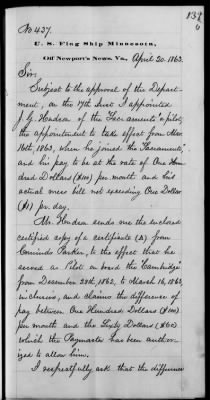 137
6
No 427.
U. S. Flag Ship Minnesota,
Off Newport's News. Va., April 20. 1863.
Sir:
Subject to the approval of the Depart-
ment, on the 17th Inst I appointed
J. G. Hendson of the "Sacramento" a pilot,
the appointment to take effect from Mar.
16th, 1863, when he joined the "Sacramento",
and his pay to be at the rate of One Hun-
dred Dollars ($100) per month and his
actual mess bill not exceeding One Dollar
($1) pr. day.
Mr. Hendson sends me the enclosed
certified copy of a certificate (A) from
Commdr Parker, to the effect that he
served as Pilot on board the "Cambridge"
from December 28th, 1862, to March 16, 1863,
inclusive, and claims the difference of
pay between One Hundred Dollars ($100)
per month and the Sixty Dollars ($60)
which the Paymaster has been author-
ized to allow him.
I respectfully ask that the difference